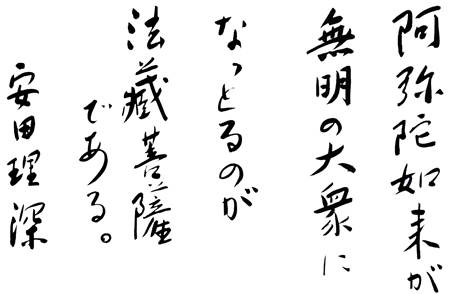 阿弥陀如来が
無明の大衆に
なっとるのが
法藏菩薩
である。
安田理深